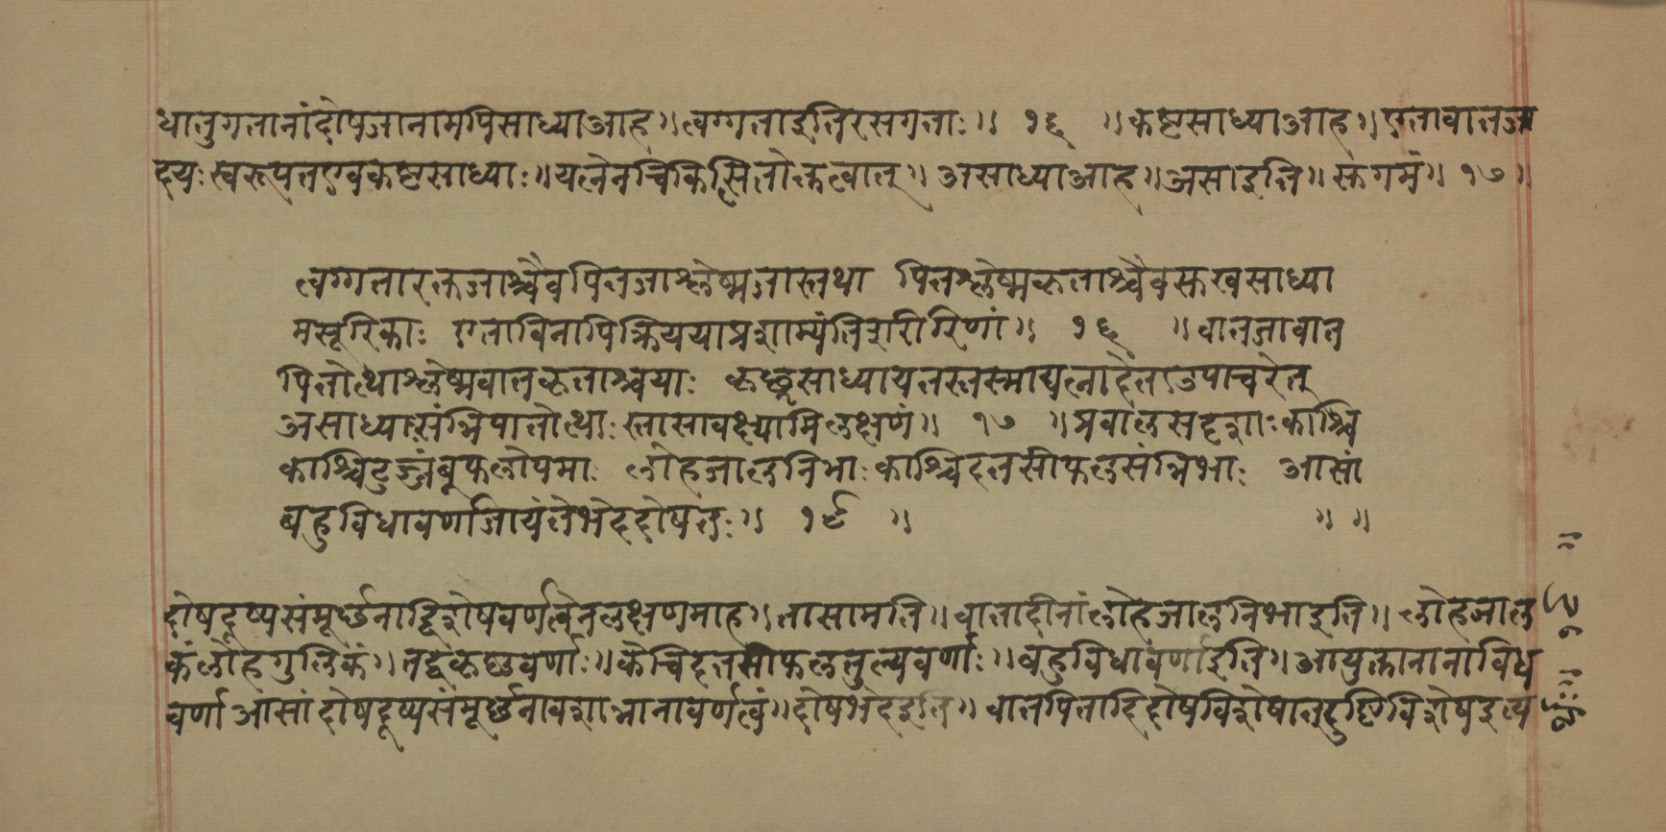 धातुगतानांदोषजानामपिसाध्याआह॥त्वग्गताइतिरसगताः॥ १६ ॥कष्टसाध्याआह॥एतावातजा
दयः स्वरूपतएवकष्टसाध्याः॥यत्नेनचिकित्सितोक्तत्वात्॥असाध्याआह॥असाइति॥सुगमं॥१७॥
त्वग्गतारक्तजाश्चैवपित्तजाश्लेष्मजास्तथा पित्तश्लेष्मकृताश्चैवसुखसाध्या
मसूरिकाः एताविनापिक्रिययाप्रशाम्यंतिशरीरिणां॥ १६ ॥वातजावात
पित्तोत्थाश्लेष्मवातकृताश्चयाः कृछ्रसाध्यायतस्तस्माद्यत्नादेताउपाचरेत्
असाध्याःसंन्निपातोत्थाः स्तासावक्ष्यामिलक्षणं॥ १७ ॥प्रवालसदृशाःकाश्चि
काश्चिज्जंबूफलोपमाः लोहजालनिभाः काश्चिदतसीफलसंन्निभाः आसां
बहुविधावर्णाजायंतेभेददोषतः॥ १८ ॥ ॥ ॥
दोषदूष्यसंमूर्छनाद्विशेषवर्णत्वेनलक्षणमाह॥तासामति॥वातादीनांलोहजालनिभाइति॥लोहजाल
कंलोहगुलिकं॥तद्वत्कृष्णवर्णाः॥केचिदतसीफलतुल्यवर्णाः॥बहुविधावर्णाइति॥आयुक्तानानाविध
वर्णा आसां दोषदूष्यसंमूर्छनावशान्नानावर्णत्वं॥दोषभेदइति॥वातपित्तादिदोषविशेषात्दुष्टिविशेषइत्य